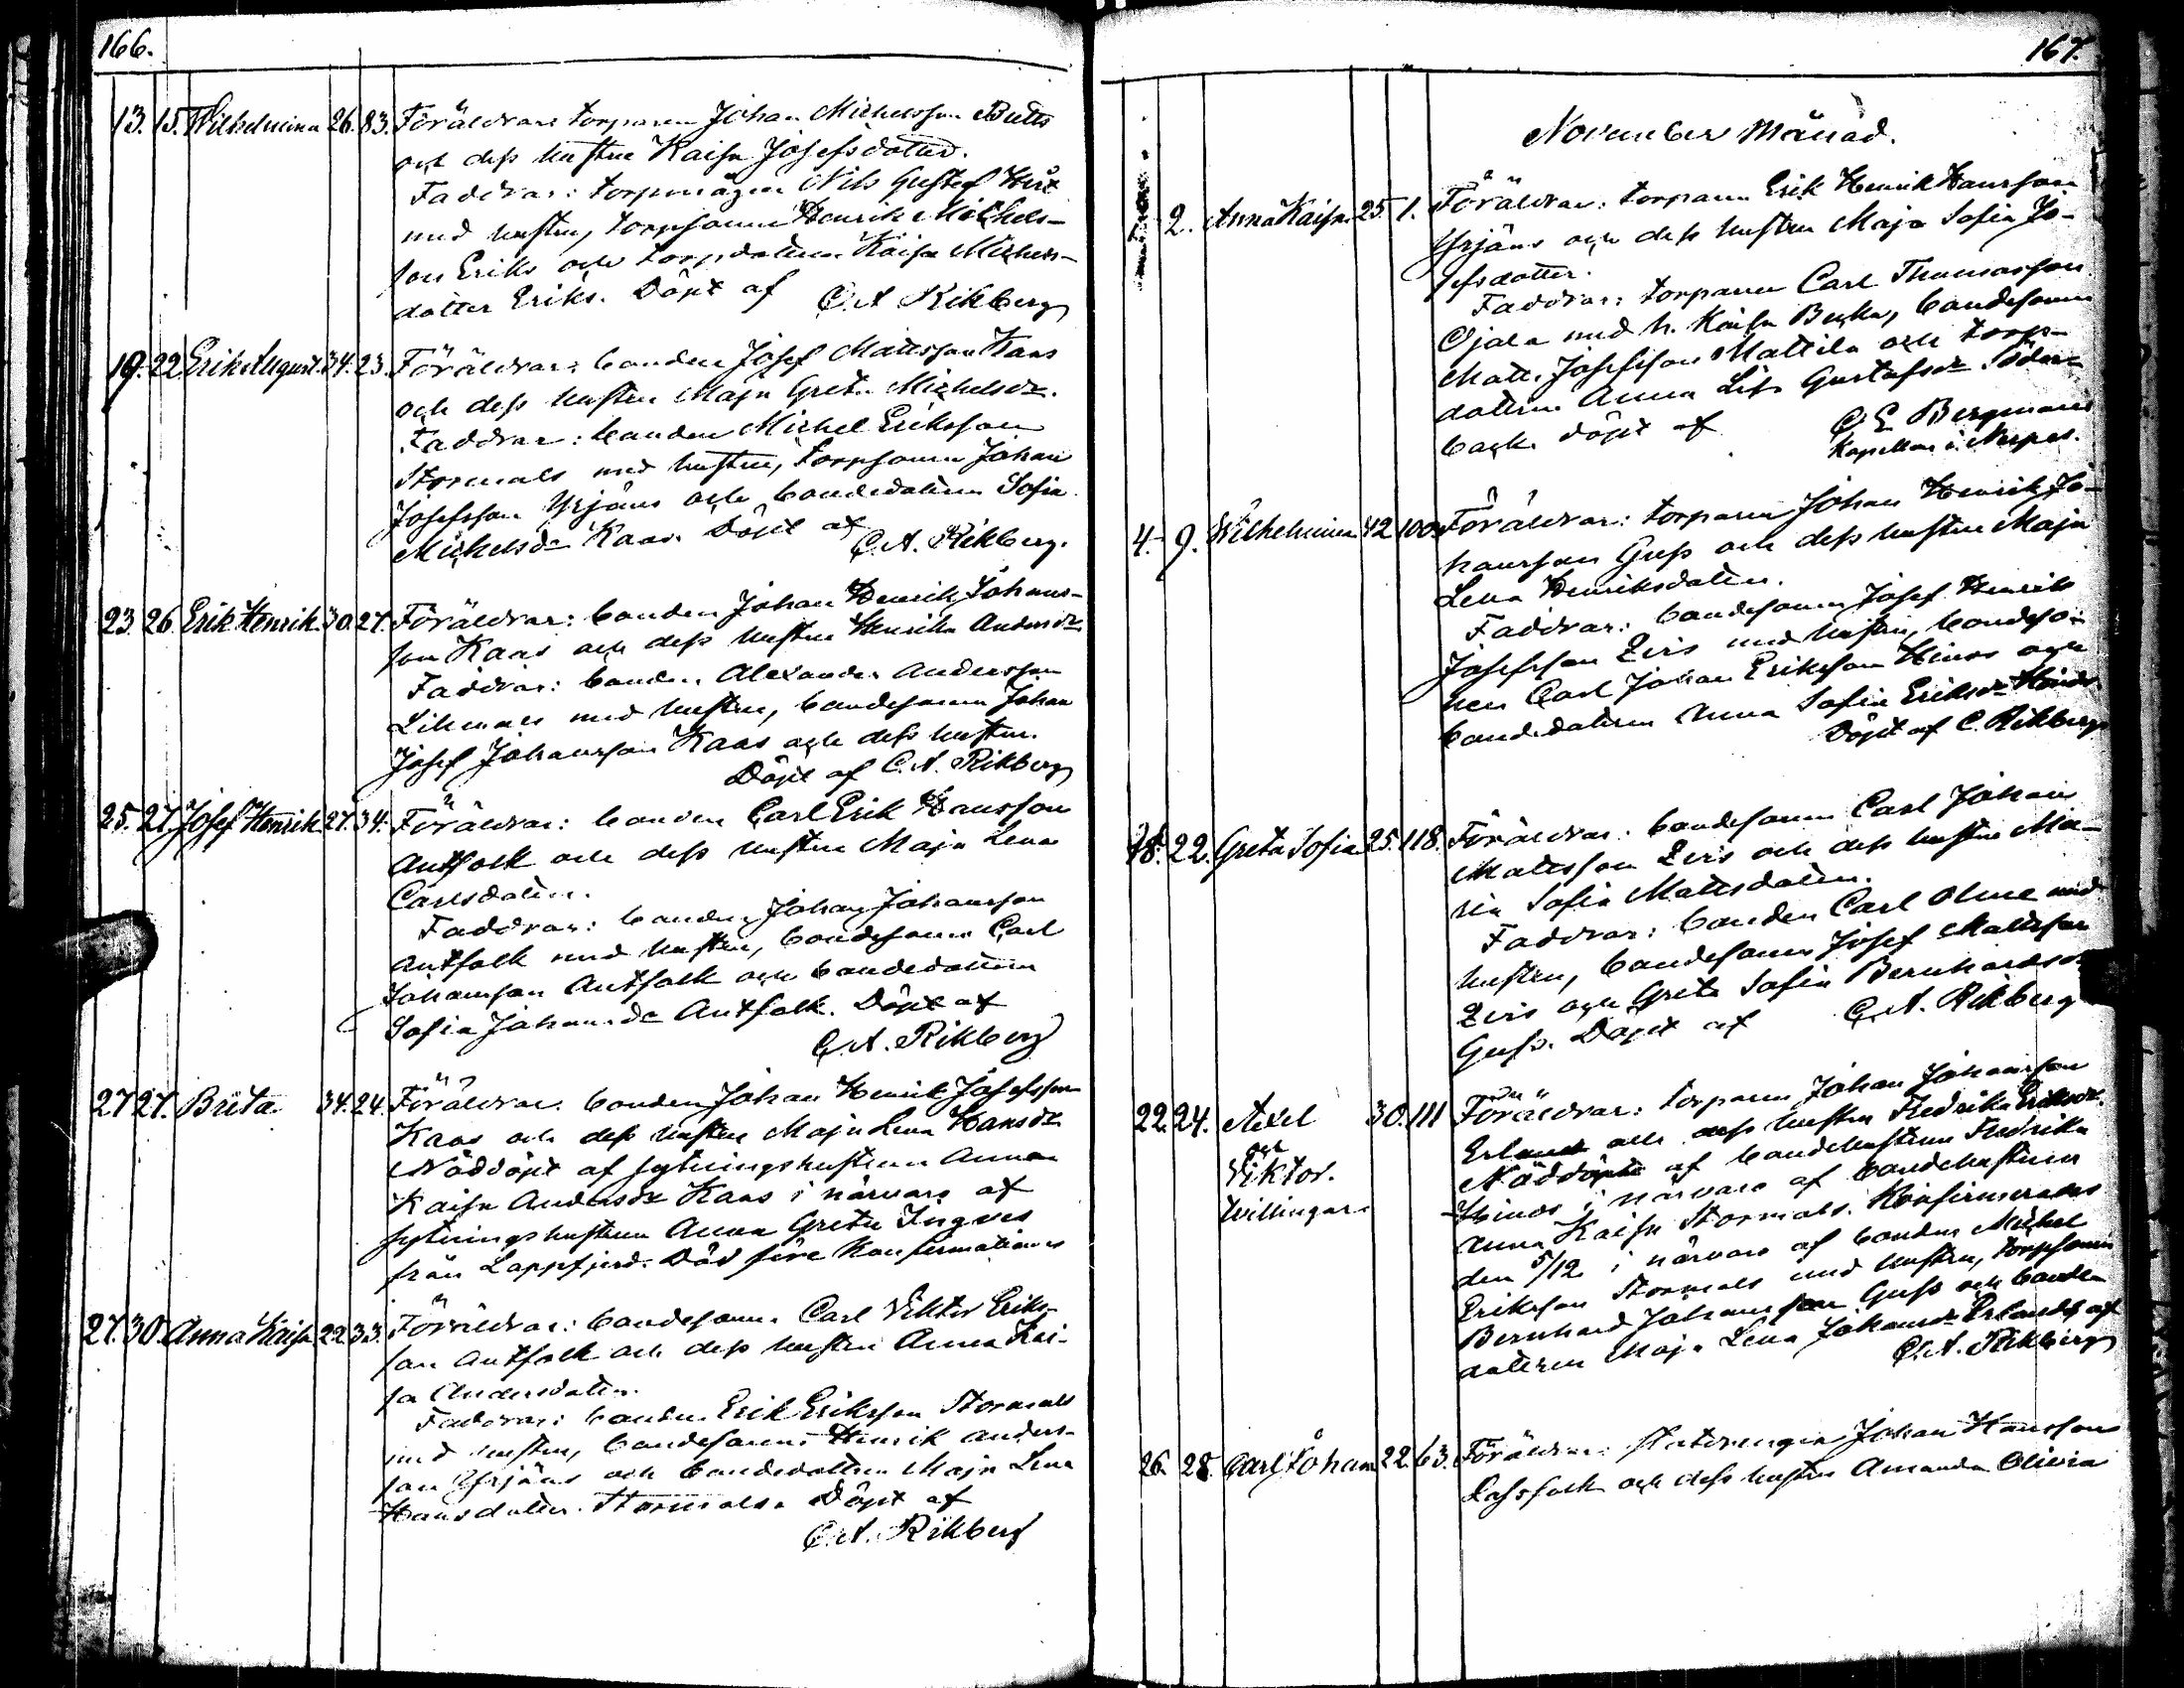 166.
13. 15. Wilhelmina 26. 83. Föräldrar torparen Johan Michelsson Butts
och dess hustru Kaisa Josefsdotter.
Faddrar: torpmågen Nils Gustaf
med hustru, torpsonen Henrik Michels-
son Eriks och torpdottren Kaisa Michels-
dotter Eriks. Döpt af C. A. Rikberg
19. 22. Erik August. 34. 23. Föräldrar: bonden Josef Mattsson Kaas
och dess hustru Maja Greta Michelsdr.
Faddrar: bonden Michel Eriksson
Stormals med hustru, torpsonen Johan
Josefsson Yrjäns och bondedottren Sofia
Michelsdr Kaas. Döpt af C. A. Rikberg.
23. 26 Erik Henrik 30. 27. Föräldrar: bonden Johan Henrik Johans-
son Kaas och dess hustru Henrika Andersdr
Faddrar: bonden Alexander Andersson
Lihmals med hustru, bondesonen Johan
Josef Johansson Kaas och dess hustru.
Döpt af C. A. Rikberg
25. 27. Josef Henrik 27. 34. Föräldrar: bonden Carl Erik Hansson
Antfolk och dess hustru Maja Lena
Carlsdotter.
Faddrar: bonden Johan Johansson
Antfolk med hustru, bondesonen Carl
Johansson Antfolk och bondedottren
Sofia Johansdr Antfolk. Döpt af
C. A. Rikberg
27 27. Brita 34. 24. Föräldrar: bonden Johan Henrik Josefsson
Kaas och dess hustru Maja Lena Hansdr
Nöddöpt af sytningshustrun Anna
Kaisa Andersdr Kaas i närvaro af
sytningshustrun Anna Greta Ingves
från Lappfjerd. Död före konfirmationen
27. 30. Anna Kaisa 22. 33. Föräldrar: bondesonen Carl Viktor Eriks-
son Antfolk och dess hustru Anna Kai-
sa Andersdotter.
Faddrar: bonden Erik Eriksson Stormals
med hustru, bondesonen Henrik Anders-
son Yrjäns och bondedottren Maja Lena
Hansdotter Stormals. Döpt af
C. A. Rikberg
167.
November Månad.
2. Anna Kaisa 25. 1. Föräldrar: torparen Erik Henrik Hansson
Yrjäns och dess hustru Maja Sofia Jo-
sefsdotter.
Faddrar: torparen Carl Thomasson
Ojala med h. Kaisa Beata, bondesonen
Matts Josefsson Mattila och torp-
dottren Anna Lisa Gustafsdr Söder-
back. Döpt af C E Bergman
Kapellan i Nerpes.
4. 9. Wilhelmina 42 100. Föräldrar: torparen Johan Henrik Jo-
hansson Guss och dess hustru Maja
Lena Henriksdotter.
Faddrar: bondesonen Josef Henrik
Josefsson Zeis med hustru, bondeso-
nen Carl Johan Eriksson Hinds och
bondedottren Anna Sofia Eriksdr Hinds
Döpt af C. Rikberg
18. 22. Greta Sofia 25. 118. Föräldrar: bondesonen Carl Johan
Mattsson Zeis och dess hustru Ma-
ria Sofia Mattsdotter.
Faddrar: bonden Carl Olme med
hustru, bondesonen Josef Mattsson
Zeis och Greta Sofia Bernhardsdr
Guss. Döpt af C. A. Rikberg
22 24. Axel 30. 111 Föräldrar: torparen Johan Johansson
och
Viktor.
Tvillingar.
Erlands och dess hustru Fredrika Eriksdr.
Nöddöpta af bondehustrun Fredrika
Hinds i närvaro af bondehustrun
Anna Kaisa Stormals. Konfirmerades
den 5/12 i närvaro af bonden Michel
Eriksson Stormals med hustru, torpsonen
Bernhard Johansson Guss och bonde-
dottren Maja Lena Johansdr Erlands af
C. A. Rikberg
26. 28. Carl Johan 22. 63. Föräldrar: Johan Hansson
Lassfolk och dess hustru Amanda Olivia